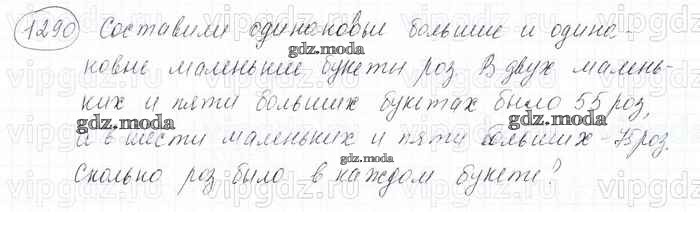 1290 Составили одинаковые большие и одина-
ковые маленькие букеты роз. В двух малень-
ких и пяти больших букетах было 55 роз,
а в шести маленьких и пяти больших - 75 роз.
Сколько роз было в каждом букете?
gdz.moda
gdz.moda
gdz.moda
gdz.moda
gdz.moda
gdz.moda